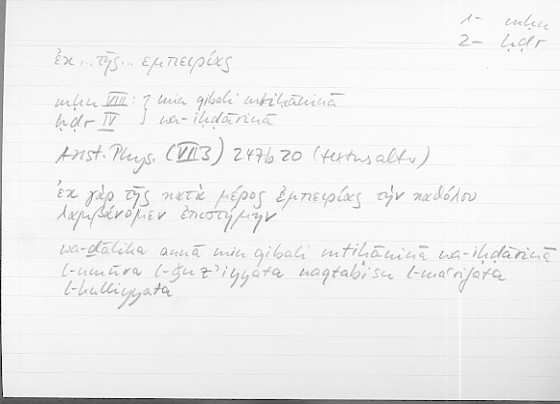 1- mḥn
2- ḥḍr
ἐκ ... τῆς ... ἐμπειρίας
mḥn VIII : } min qibali mtiḥāninā
ḥḍr IV } wa-iḥḍārinā
Arist. Phys. (VII 3) 247b20 (textus alter)
ἐκ γὰρ τῆς κατὰ μέρος ἐμπειρίας τὴν καθόλου
λαμβάνομεν ἐπιστήμην
wa-ḏālika annā min qibali mtiḥāninā wa-iḥḍārinā
l-umūra l-ǧuzʾiyyata naqtabisu l-maʿrifata
l-kulliyyata